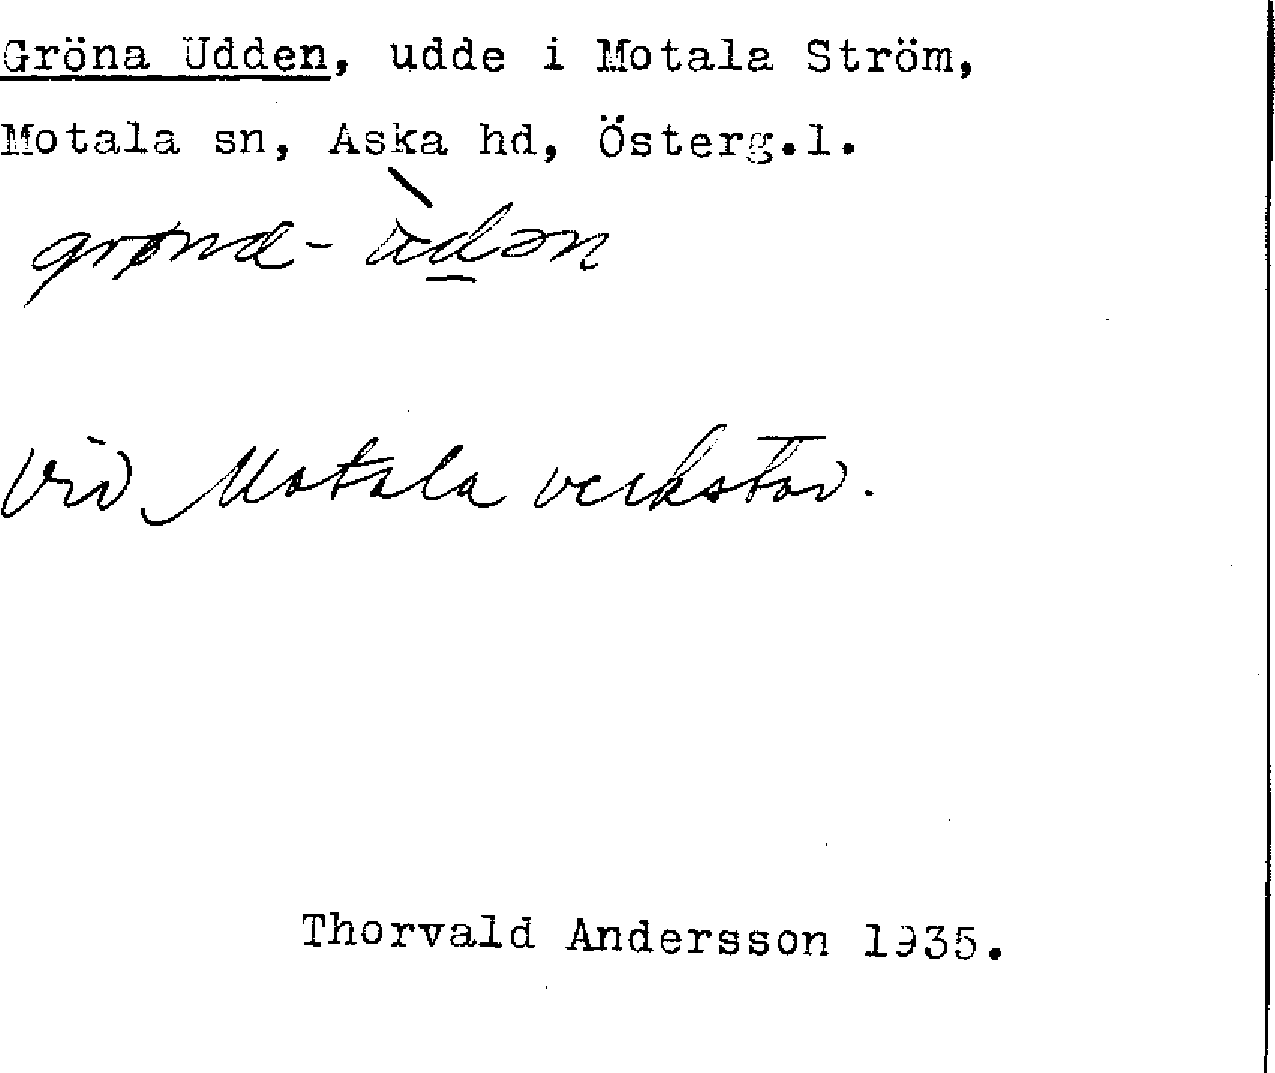 Gröna Udden, udde i Motala Ström,
Motala sn, Aska hd, Österg.l.
grøna- ùdən
Vid Motala verkstad.
Thorvald Andersson 1935.